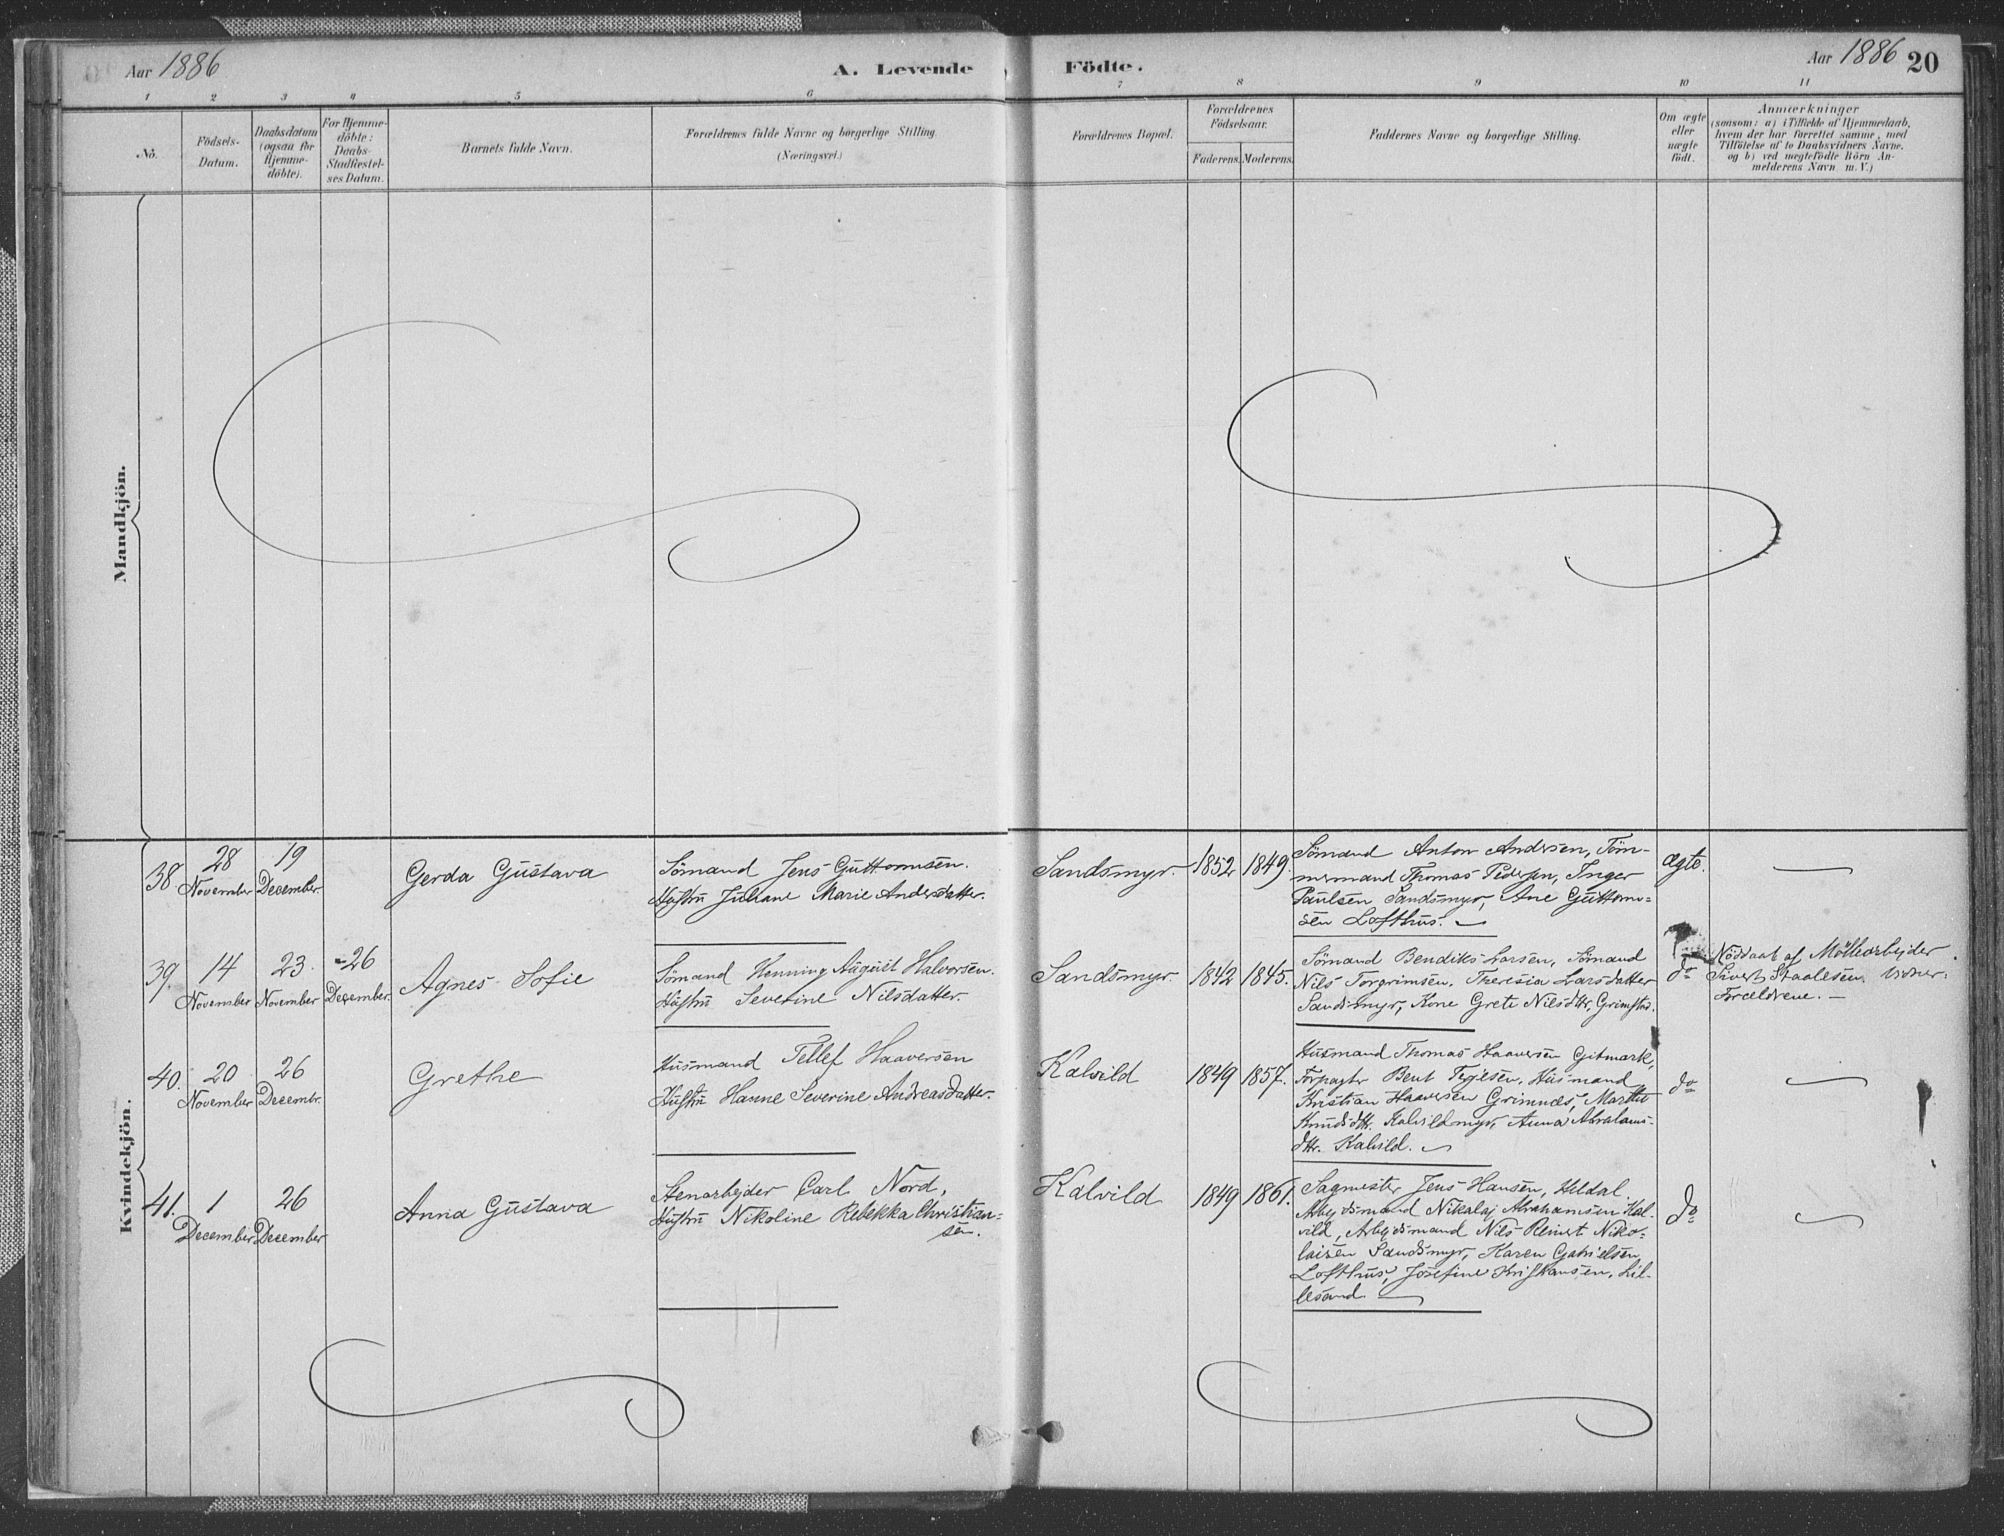 Aar 1886
A. Levende Födte.
Aar 1886 20
1 2 3 4 5 6 7 8 9 10 11
No.
Födsels-
Datum.
Daabsdatum
(ogsaa for
Hjemme-
döbte).
For Hjemme-
döbte:
Daabs-
Stadfæstel-
ses Datum.
Barnets fulde Navn.
Forældrenes fulde Navne og borgerlige Stilling.
(Næringsvei.)
Forældrenes Bopæl.
Forældrenes
Födselsaar.
Faderens. Moderens.
Faddernes Navne og borgerlige Stilling.
Om ægte
eller
uægte
födt.
Anmærkninger
(saasom: a) i Tilfælde af Hjemmedaab,
hvem der har forrettet samme, med
Tilföielse af to Daabsvidners Navne.
og b) ved uægtefödte Börn An-
melderens Navn m. V.)
Mandkjön.
Kvindekjön.
38. 28 November 19 December
Gerda Gustava
Sömand Jens Guttormsen.
Hustru Juliane Marie Andersdatter.
Sandsmyr. 1852 1849.
Sömand Anton Andersen, Töm-
mermand Thomas Pedersen, Inger
Paulsen Sandsmyr, Ane Guttorm-
sen Lofthus.
ægte.
39. 14 November 23. November -26 December
Agnes Sofie
Sömand Henning August Halvorsen.
Hustru Severine Nilsdatter.
Sandsmyr. 1842 1845.
Sömand Bendiks Larsen, Sömand
Nils Torgrimsen, Theresia Larsdatter
Sandsmyr, Kone Grete Nilsdtr, Grimstad.
do
Nöddaab af Möllearbejder
Sivert Staalesen. Vidner:
Forældrene.
40. 20 November 26 Decembr.
Grethe
Husmand Tellef Haaversen
Hustru Hanne Severine Andreasdatter.
Kalvild 1849 1857.
Husmand Thomas Haaversen Gitmark,
Forpagter Bent Terjesen, Husmand
Kristian Haaversen Grimnes, Marthe
Knudsdtr. Kalvildmyr, Anna Abrahams-
dtr. Kalvild.
do
41. 1 December 26 December
Anna Gustava
Stenarbejder Carl Nord,
Hustru Nikoline Rebekka Christian-
sen.
Kalvild 1849 1861.
Sagmester Jens Hansen, Hildal
Arbejdsmand Nikolaj Abrahamsen Kal-
vild, Arbejdsmand Nils Reinert Niko-
laisen Sandsmyr, Karen Gabrielsen
Lofthus, Josefine Kristiansen, Lil-
lesand.
do